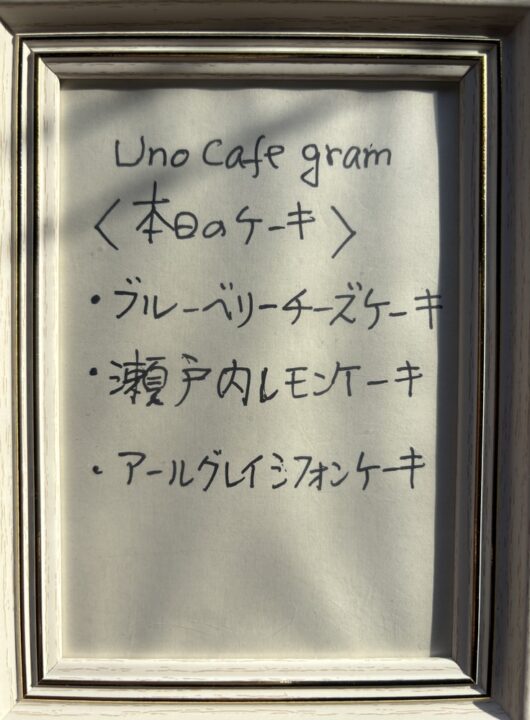 Uno Cafe gram
〈本日のケーキ〉
・ブルーベリーチーズケーキ
・瀬戸内レモンケーキ
・アールグレイシフォンケーキ